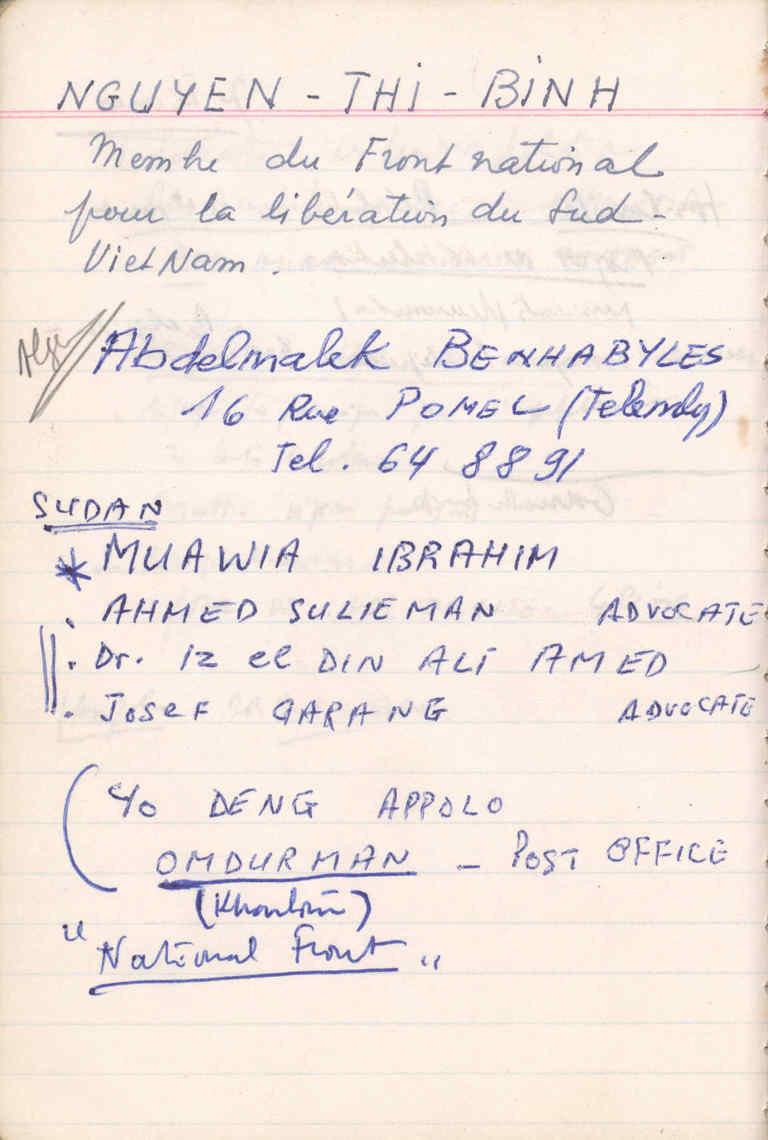 NGUYEN - THI - BINH
Membre du Front national
pour la libération du Sud-
VietNam.
Alger
Abdelmalek BENHABYLES
16 Rue POMEL (Telemly)
Tel. 64 88 91
SUDAN
* MUAWIA IBRAHIM
. AHMED SULIEMAN ADVOCATE
. Dr. iz el DIN ALi AMED
. JOSEF GARANG ADVOCATE
( c/o DENG APPOLO
OMDURMAN - POST OFFICE
(Khartoum)
"National Front"